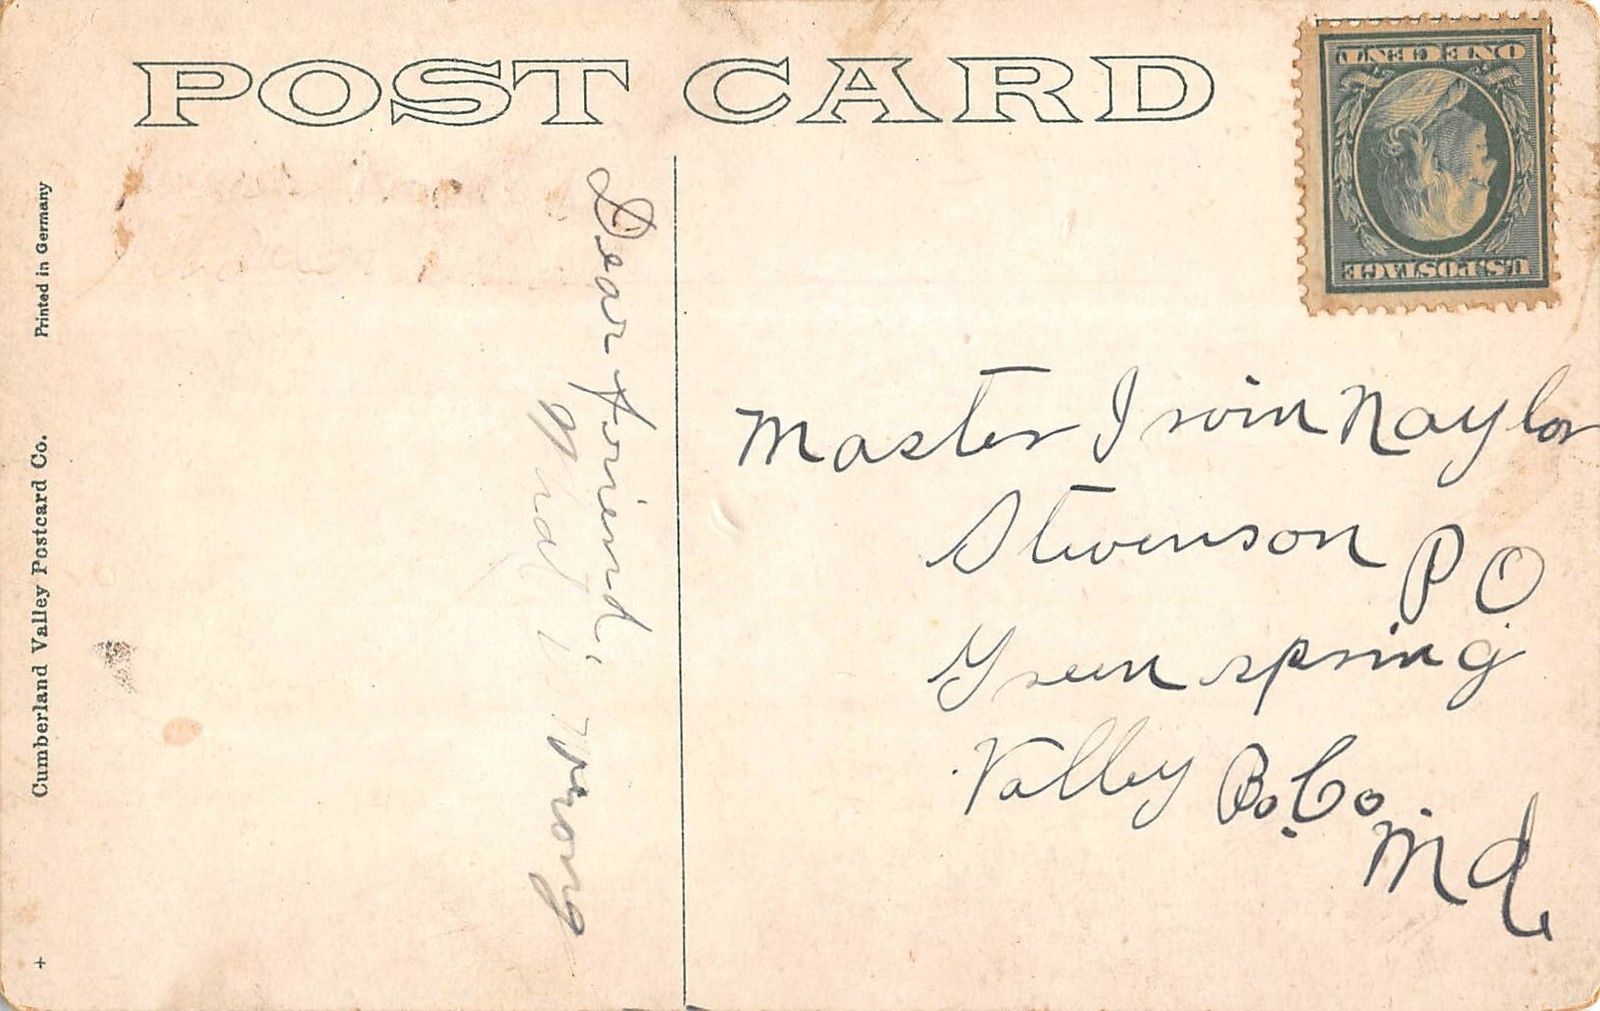 POST CARD
Printed in Germany
Cumberland Valley Postcard Co.
ONE CENT
U.S. POSTAGE
Dear friend,
wrong
Master Irvin Naylor
Stevenson P O
Green spring
Valley Bo. Co.
Md.